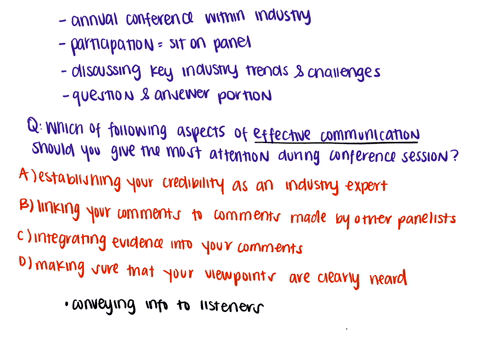 - annual conference within industry
- participation = sit on panel
- discussing key industry trends & challenges
- question & answer portion
Q: Which of following aspects of effective communication
should you give the most attention during conference session?
A) establishing your credibility as an industry expert
B) linking your comments to comments made by other panelists
C) integrating evidence into your comments
D) making sure that your viewpoints are clearly heard
• conveying info to listeners